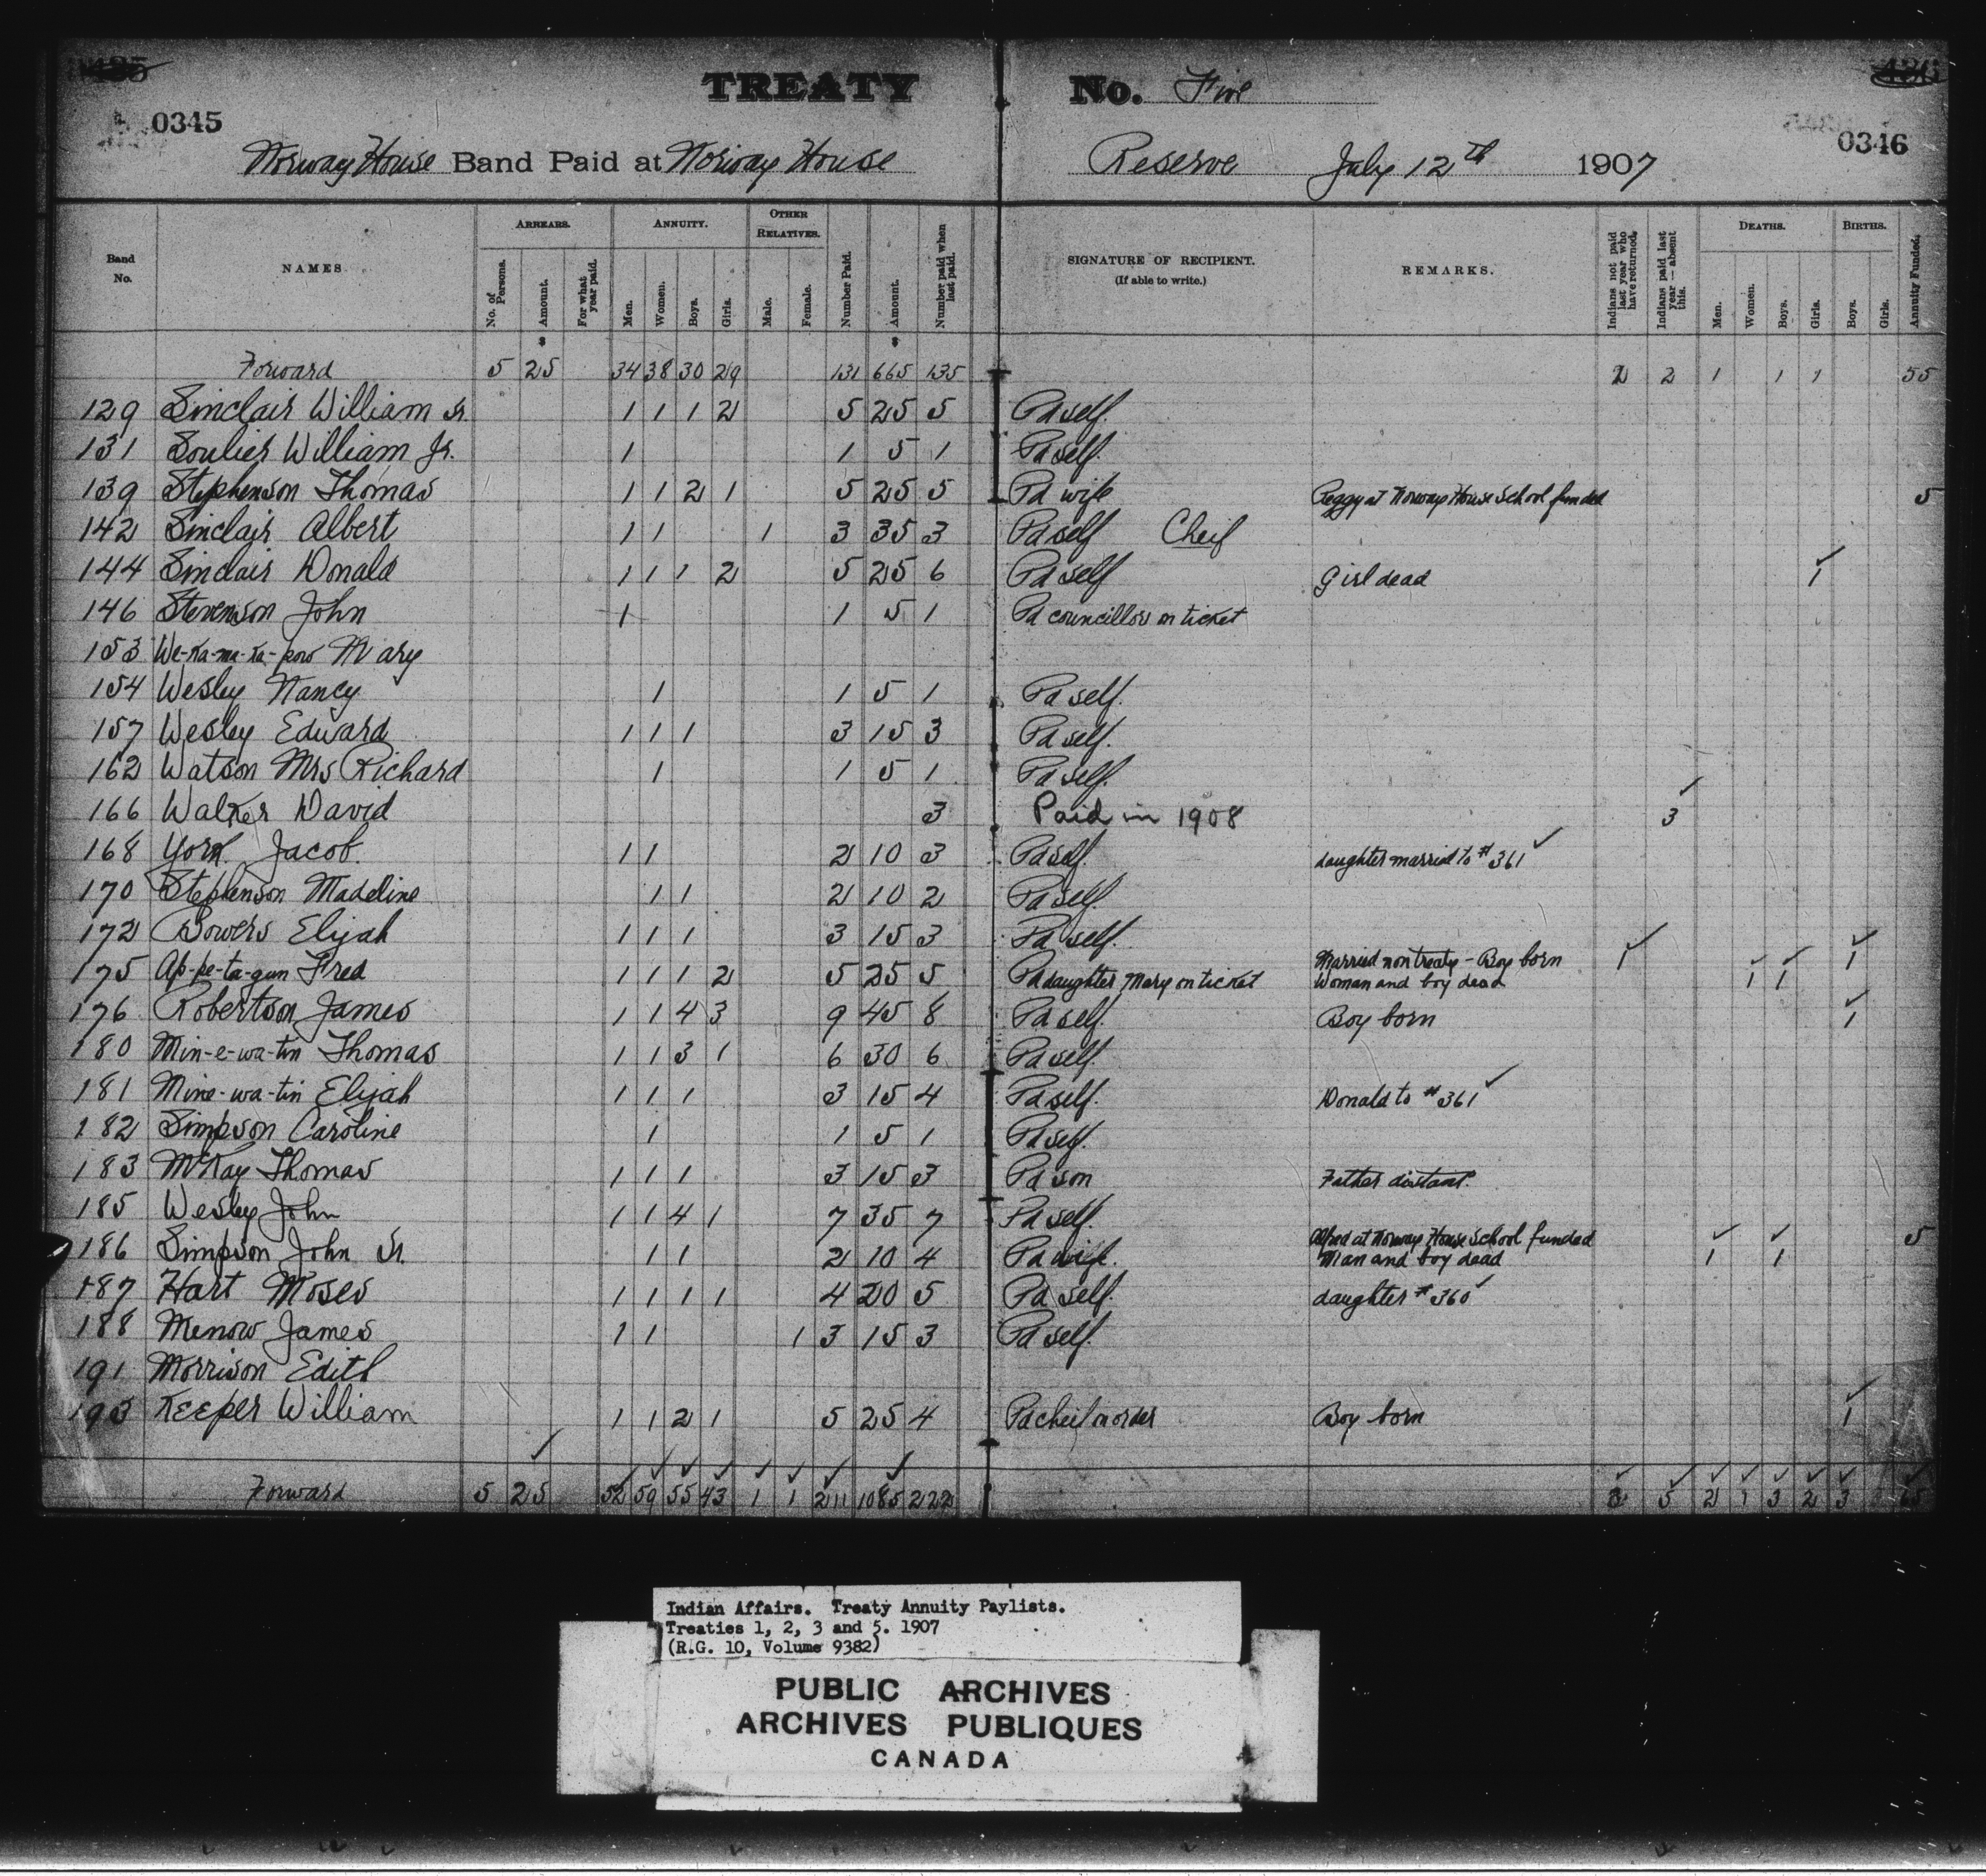 TREATY No. Five
0345 0346
Norway House Band Paid at Norway House Reserve July 12th 1907
Band No. NAMES ARREARS. No. of Persons. Amount. For what year paid. ANNUITY. Men. Women. Boys. Girls. OTHER RELATIVES. Male. Female. Number Paid. Amount. Number paid when last paid. SIGNATURE OF RECIPIENT. (If able to write.) REMARKS. Indians not paid last year who have returned. Indians paid last year—absent this. DEATHS. Men. Women. Boys. Girls. BIRTHS. Boys. Girls. Annuity Funded.
$ $
Forward 5 25 34 38 30 29 131 665 135 2 2 1 1 1 55
129 Sinclair William Sr. 1 1 1 2 5 25 5 Pd self.
131 Soulier William Jr. 1 1 5 1 Pd self.
139 Stephenson Thomas 1 1 2 1 5 25 5 Pd wife Peggy at Norway House School funded 5
142 Sinclair Albert 1 1 1 3 35 3 Pd self Cheif
144 Sinclair Donald 1 1 1 2 5 25 6 Pd self Girl dead 1
146 Stevenson John 1 1 5 1 Pd councillor on ticket
153 We-ka-ma-ka-pow Mary
154 Wesley Nancy 1 1 5 1 Pd self.
157 Wesley Edward 1 1 1 3 15 3 Pd self.
162 Watson Mrs Richard 1 1 5 1 Pd self.
166 Walker David 3 Paid in 1908 3
168 York Jacob. 1 1 2 10 3 Pd self. daughter married to #361
170 Stephenson Madeline 1 1 2 10 2 Pd self.
172 Bowers Elijah 1 1 1 3 15 3 Pd self.
175 Ap-pe-ta-gun Fred 1 1 1 2 5 25 5 Pd daughter Mary on ticket Married non treaty - Boy born 1 1 1 1
Woman and boy dead
176 Robertson James 1 1 4 3 9 45 8 Pd self. Boy born 1
180 Min-e-wa-tin Thomas 1 1 3 1 6 30 6 Pd self.
181 Mine-wa-tin Elijah 1 1 1 3 15 4 Pd self. Donald to #361
182 Simpson Caroline 1 1 5 1 Pd self.
183 McKay Thomas 1 1 1 3 15 3 Pd son Father distant.
185 Wesley John 1 1 4 1 7 35 7 Pd self.
186 Simpson John Sr. 1 1 2 10 4 Pd wife. Alfred at Norway House School funded 1 1 5
Man and boy dead
187 Hart Moses 1 1 1 1 4 20 5 Pd self. daughter #360
188 Menow James 1 1 1 3 15 3 Pd self.
191 Morrison Edith
193 Keeper William 1 1 2 1 5 25 4 Pd cheif on order Boy born 1
Forward 5 25 52 59 55 43 1 1 211 1085 222 3 5 2 1 3 2 3 65
Indian Affairs. Treaty Annuity Paylists.
Treaties 1, 2, 3 and 5. 1907
(R.G. 10, Volume 9382)
PUBLIC ARCHIVES
ARCHIVES PUBLIQUES
CANADA